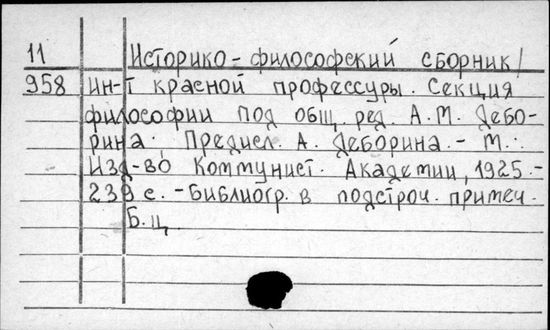 11 Историко-философский сборник/
958 Ин-т красной профессуры. Секция
философии под общ. ред. А.М. Дебо-
рина; Предисл. А. Деборина. - М.:
Изд-во Коммунист. Академии, 1925. -
239 с. - Библиогр. в подстроч. примеч.
Б.ц.